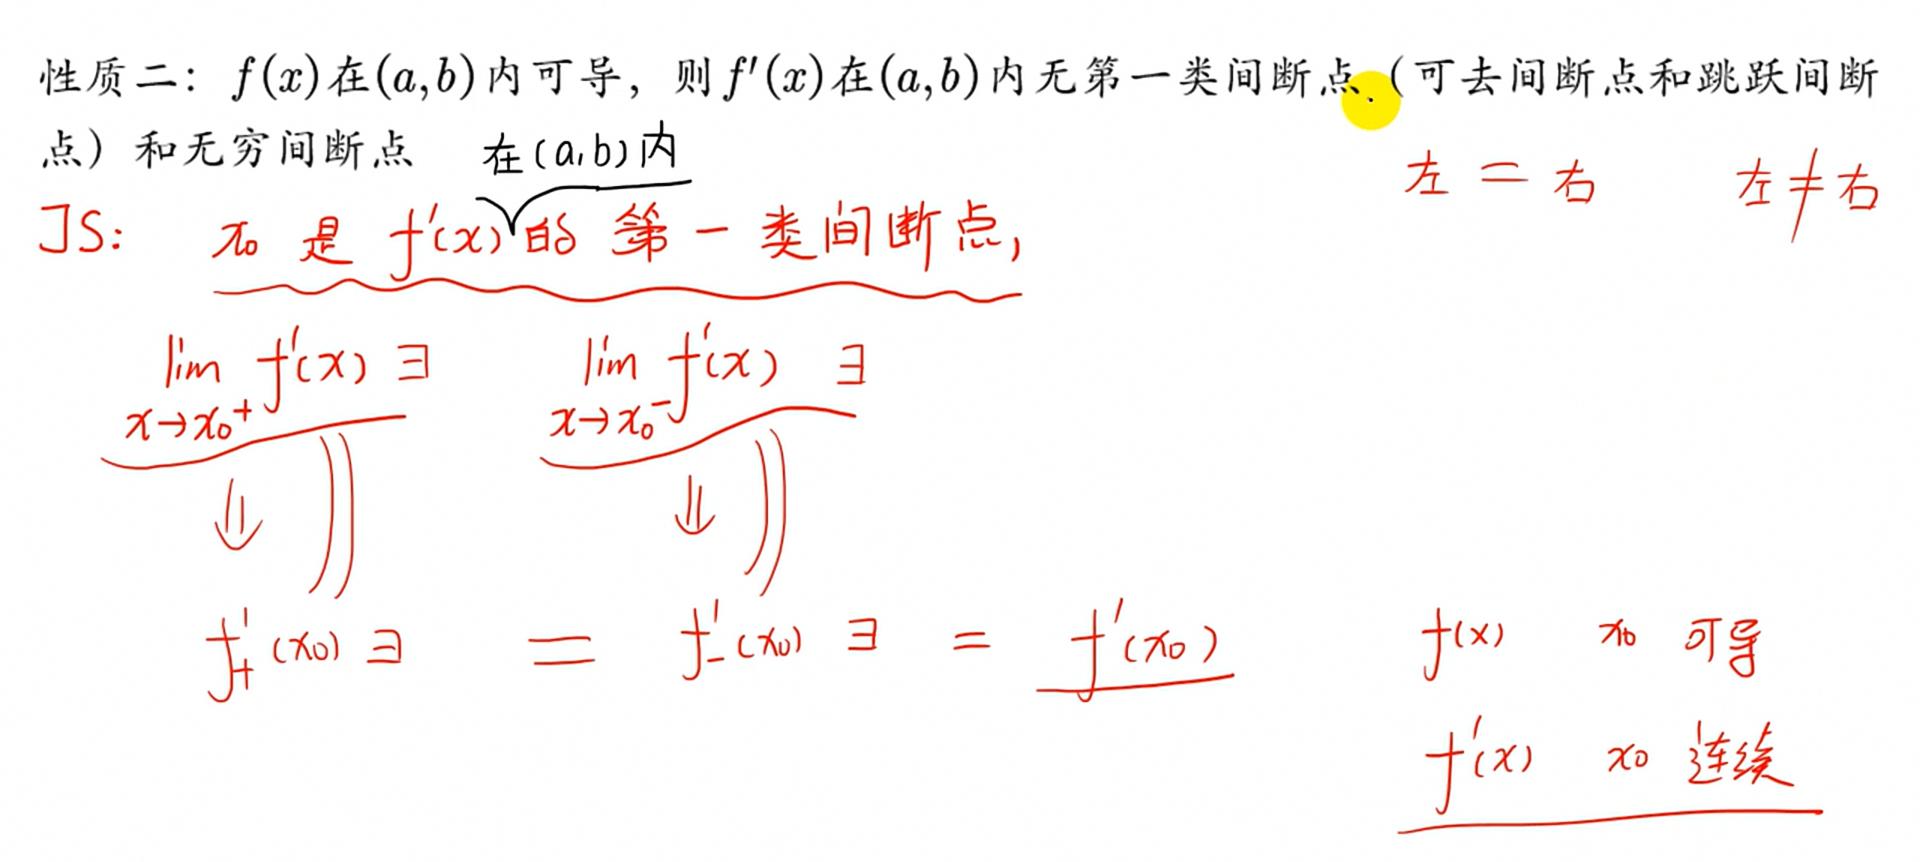 性质二：f(x)在(a,b)内可导，则f′(x)在(a,b)内无第一类间断点.（可去间断点和跳跃间断
点）和无穷间断点 在(a,b)内
左 = 右 左 ≠ 右
JS: x₀ 是 f′(x) 的 第 一 类 间 断 点,
lim f′(x) ∃ lim f′(x) ∃
x→x₀⁺ x→x₀⁻
⇓ ⇓
f′₊(x₀) ∃ = f′₋(x₀) ∃ = f′(x₀) f(x) x₀ 可导
f′(x) x₀ 连续